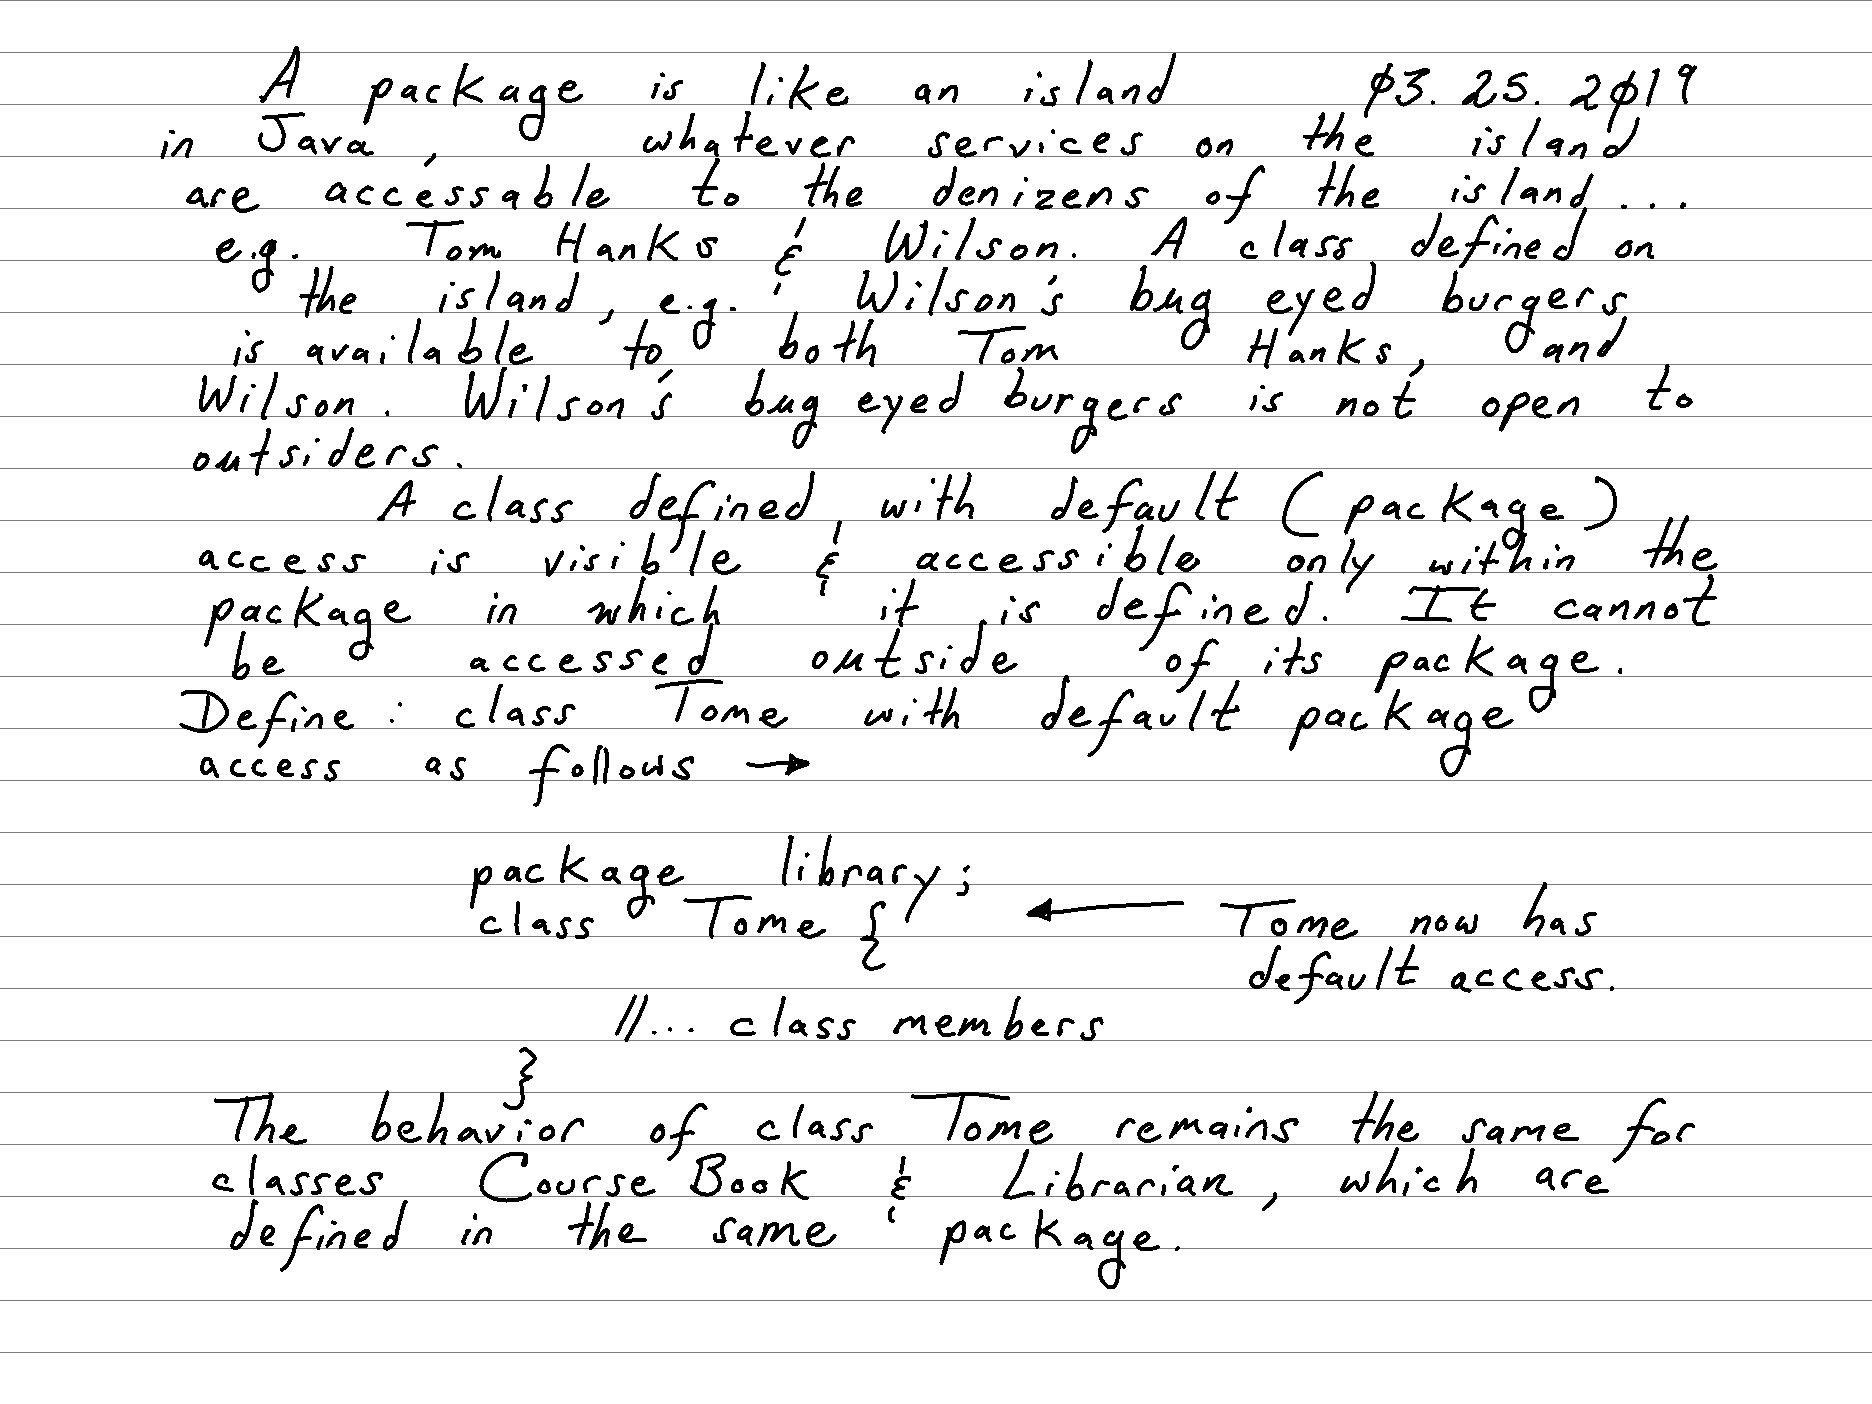 A package is like an island 03.25.2019
in Java, whatever services on the island
are accessable to the denizens of the island...
e.g. Tom Hanks & Wilson. A class defined on
the island, e.g. Wilson's bug eyed burgers
is available to both Tom Hanks, and
Wilson. Wilson's bug eyed burgers is not open to
outsiders.
A class defined with default (package)
access is visible & accessible only within the
package in which it is defined. It cannot
be accessed outside of its package.
Define: class Tome with default package
access as follows →
package library;
class Tome { ← Tome now has
default access.
//... class members
}
The behavior of class Tome remains the same for
classes Course Book & Librarian, which are
defined in the same package.